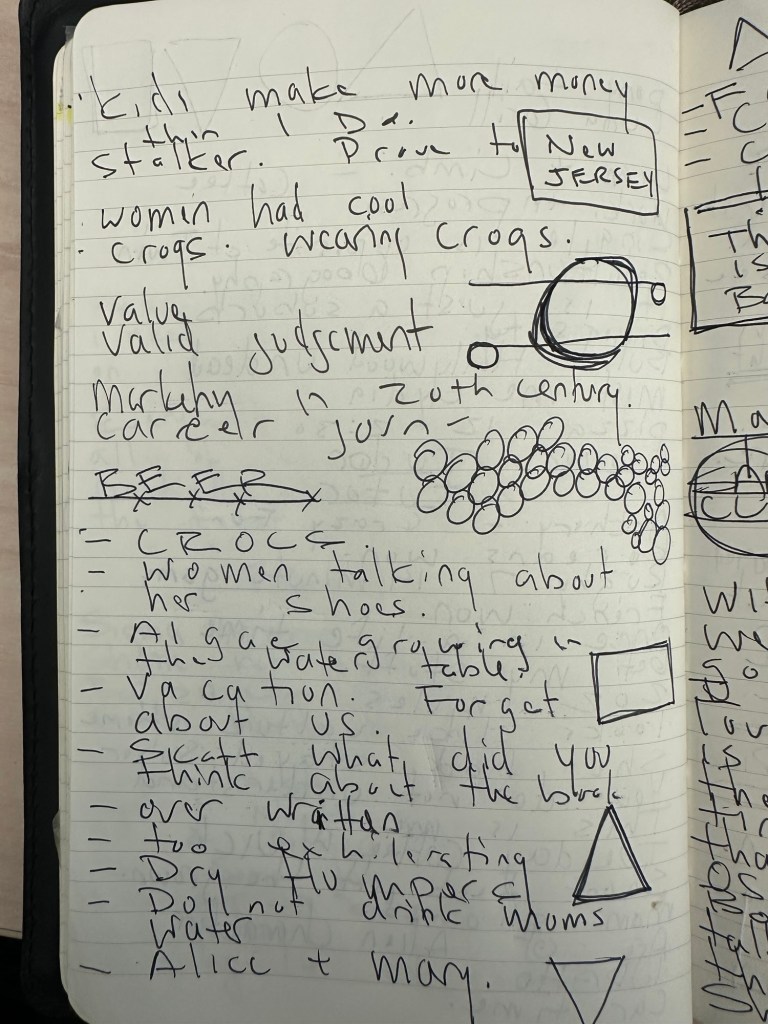 kids make more money
thin I Do.
stalker. Prove to New
JERSEY
women had cool
croqs. wearing croqs.
value
valid judgement
in 20th century.
career join -
BEER
- CROCS.
- women talking about
her shoes.
- Algae growing in
the water table.
- Vacation. Forget
about us.
- what did you
think about the book
- over written
- too exhilerating
- Dry Humpers
- Do not drink moms
water
- Alice + Mary.
Th
is
Ma
Wi
We
So
is
the